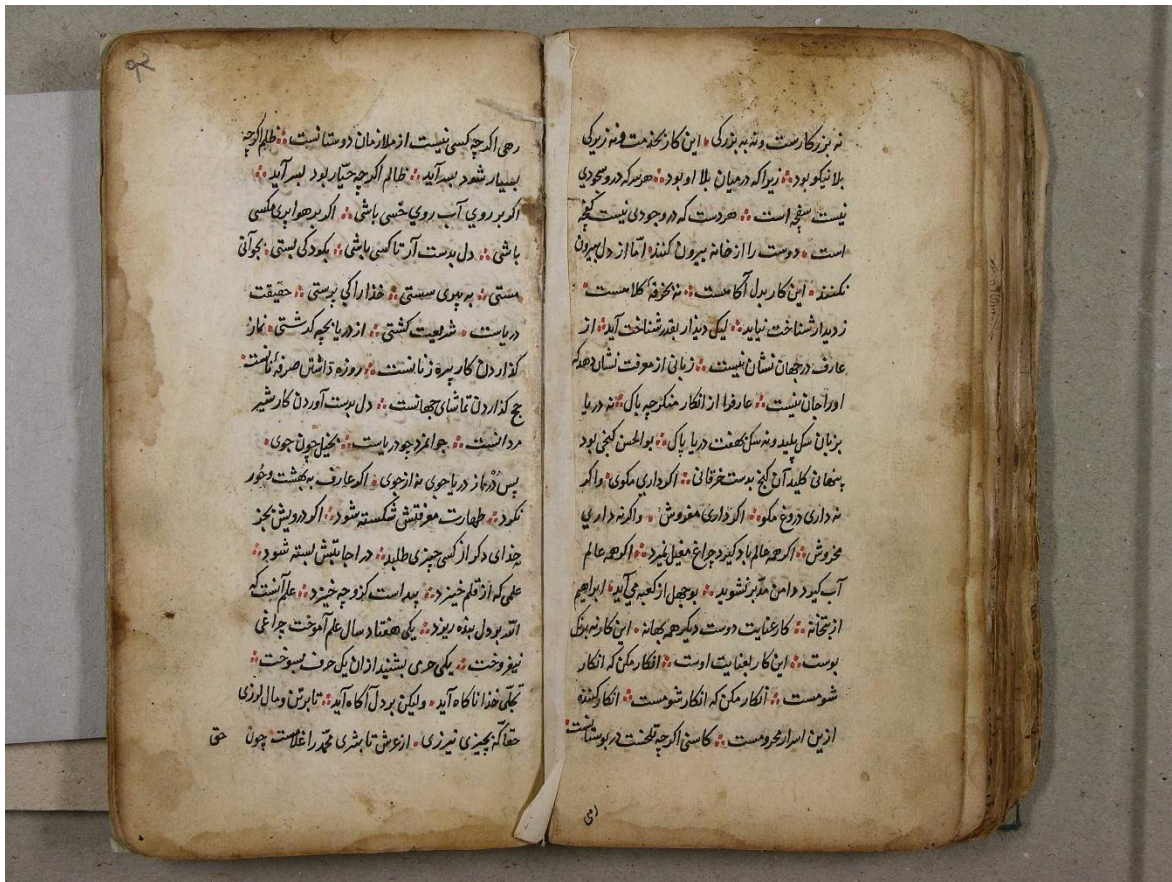 نه بزر کارست و نه به بزرکی • این کار بخدمت و نه زیرکی
بلا نیکو بود ؞ زیرا که در میان بلا او بود ؞ هرسرکه درو سجودی
نیست سفچه است ؞ هر دست که درو جودی نیست کفچه
است • دوست را از خانه بیرون کنند • امّا از دل بیرون
نکنند • این کار بدل آکاهست ؞ نه بخرقهٔ کلاهست ؞
ز دیدار شناخت نیاید ؞ لیک دیدار بقدر شناخت آید ؞ از
عارف در جهان نشان نیست ؞ زبانی از معرفت نشان دهد که
او را جان نیست ؞ عارف را از انکار منکر چه باک ؞ نه دریا
بزبان سک پلید و نه سک بهفت دریا پاک ؞ بوالحسن کنجی بود
پنهانی کلید آن کنج بدست خرقانی ؞ اکر داری مکوی • و اکر
نه داری دروغ مکو ؞ اکر داری مفروش • و اکر نه داری
مخروش ؞ اکر همه عالم باد کیرد چراغ مقبل نمیرد ؞ اکر همه عالم
آب کیرد دامن مدبّر نشوید ؞ بوجهل از کعبه می آید • ابراهیم
از بتخانه ؞ کار عنایت دوست دیکر همه بهانه • این کار نه برنک
بوست ؞ این کار بعنایت اوست ؞ انکار مکن که انکار
شومست ؞ انکار مکن که انکار شومست ؞ انکار کننده
ازین اسرار محرومست ؞ کاسنی اکرچه تلخست در بوستانست ؞
رهی
۹۲
رهی اکرچه کسی نیست از ملازمان دوستانست ؞ ظلم اکرچه
بسیار شود بسر آید ؞ ظالم اکرچه جبّار بود بسر آید ؞
اکر بر روی آب روی خسی باشی ؞ اکر بر هوا پری مکسی
باشی ؞ دل بدست آر تا کسی باشی ؞ بکودکی پستی • بجوانی
مستی ؞ به پیری سستی ؞ خدا را کی پرستی ؞ حقیقت
دریاست • شریعت کشتی ؞ از دریا بچه کدشتی • نماز
کذاردن کار پیره زنانست ؞ روزه داشتن صرفهٔ نانست ؞
حج کذاردن تماشای جهانست ؞ دل بدست آوردن کار شیر
مردانست ؞ جوانمرد چو دریاست ؞ بخیل چون جوی •
پس دُر از دریا جوی نه از جوی • اکر عارف به بهشت و حور
نکرد ؞ طهارت معرفتش شکسته شود ؞ اکر درویش بجز
خدای دکر از کسی چیزی طلبد ؞ در اجابتش بسته شود ؞
علمی که از قلم خیزد ؞ پیداست کزو چه خیزد ؞ علم آنست که
الله بر دل بنده ریزد ؞ یکی هفتاد سال علم آموخت چراغی
نیفروخت ؞ یکی حرفی بشنید از ان یک حرف بسوخت ؞
تجلّی خدا ناکاه آید • ولیکن بر دل آکاه آید ؞ تا بر تن و مال لرزی
حقا که بچیزی نیرزی • از عرش تا بثری محمّد را غلامست ؞ چون حق